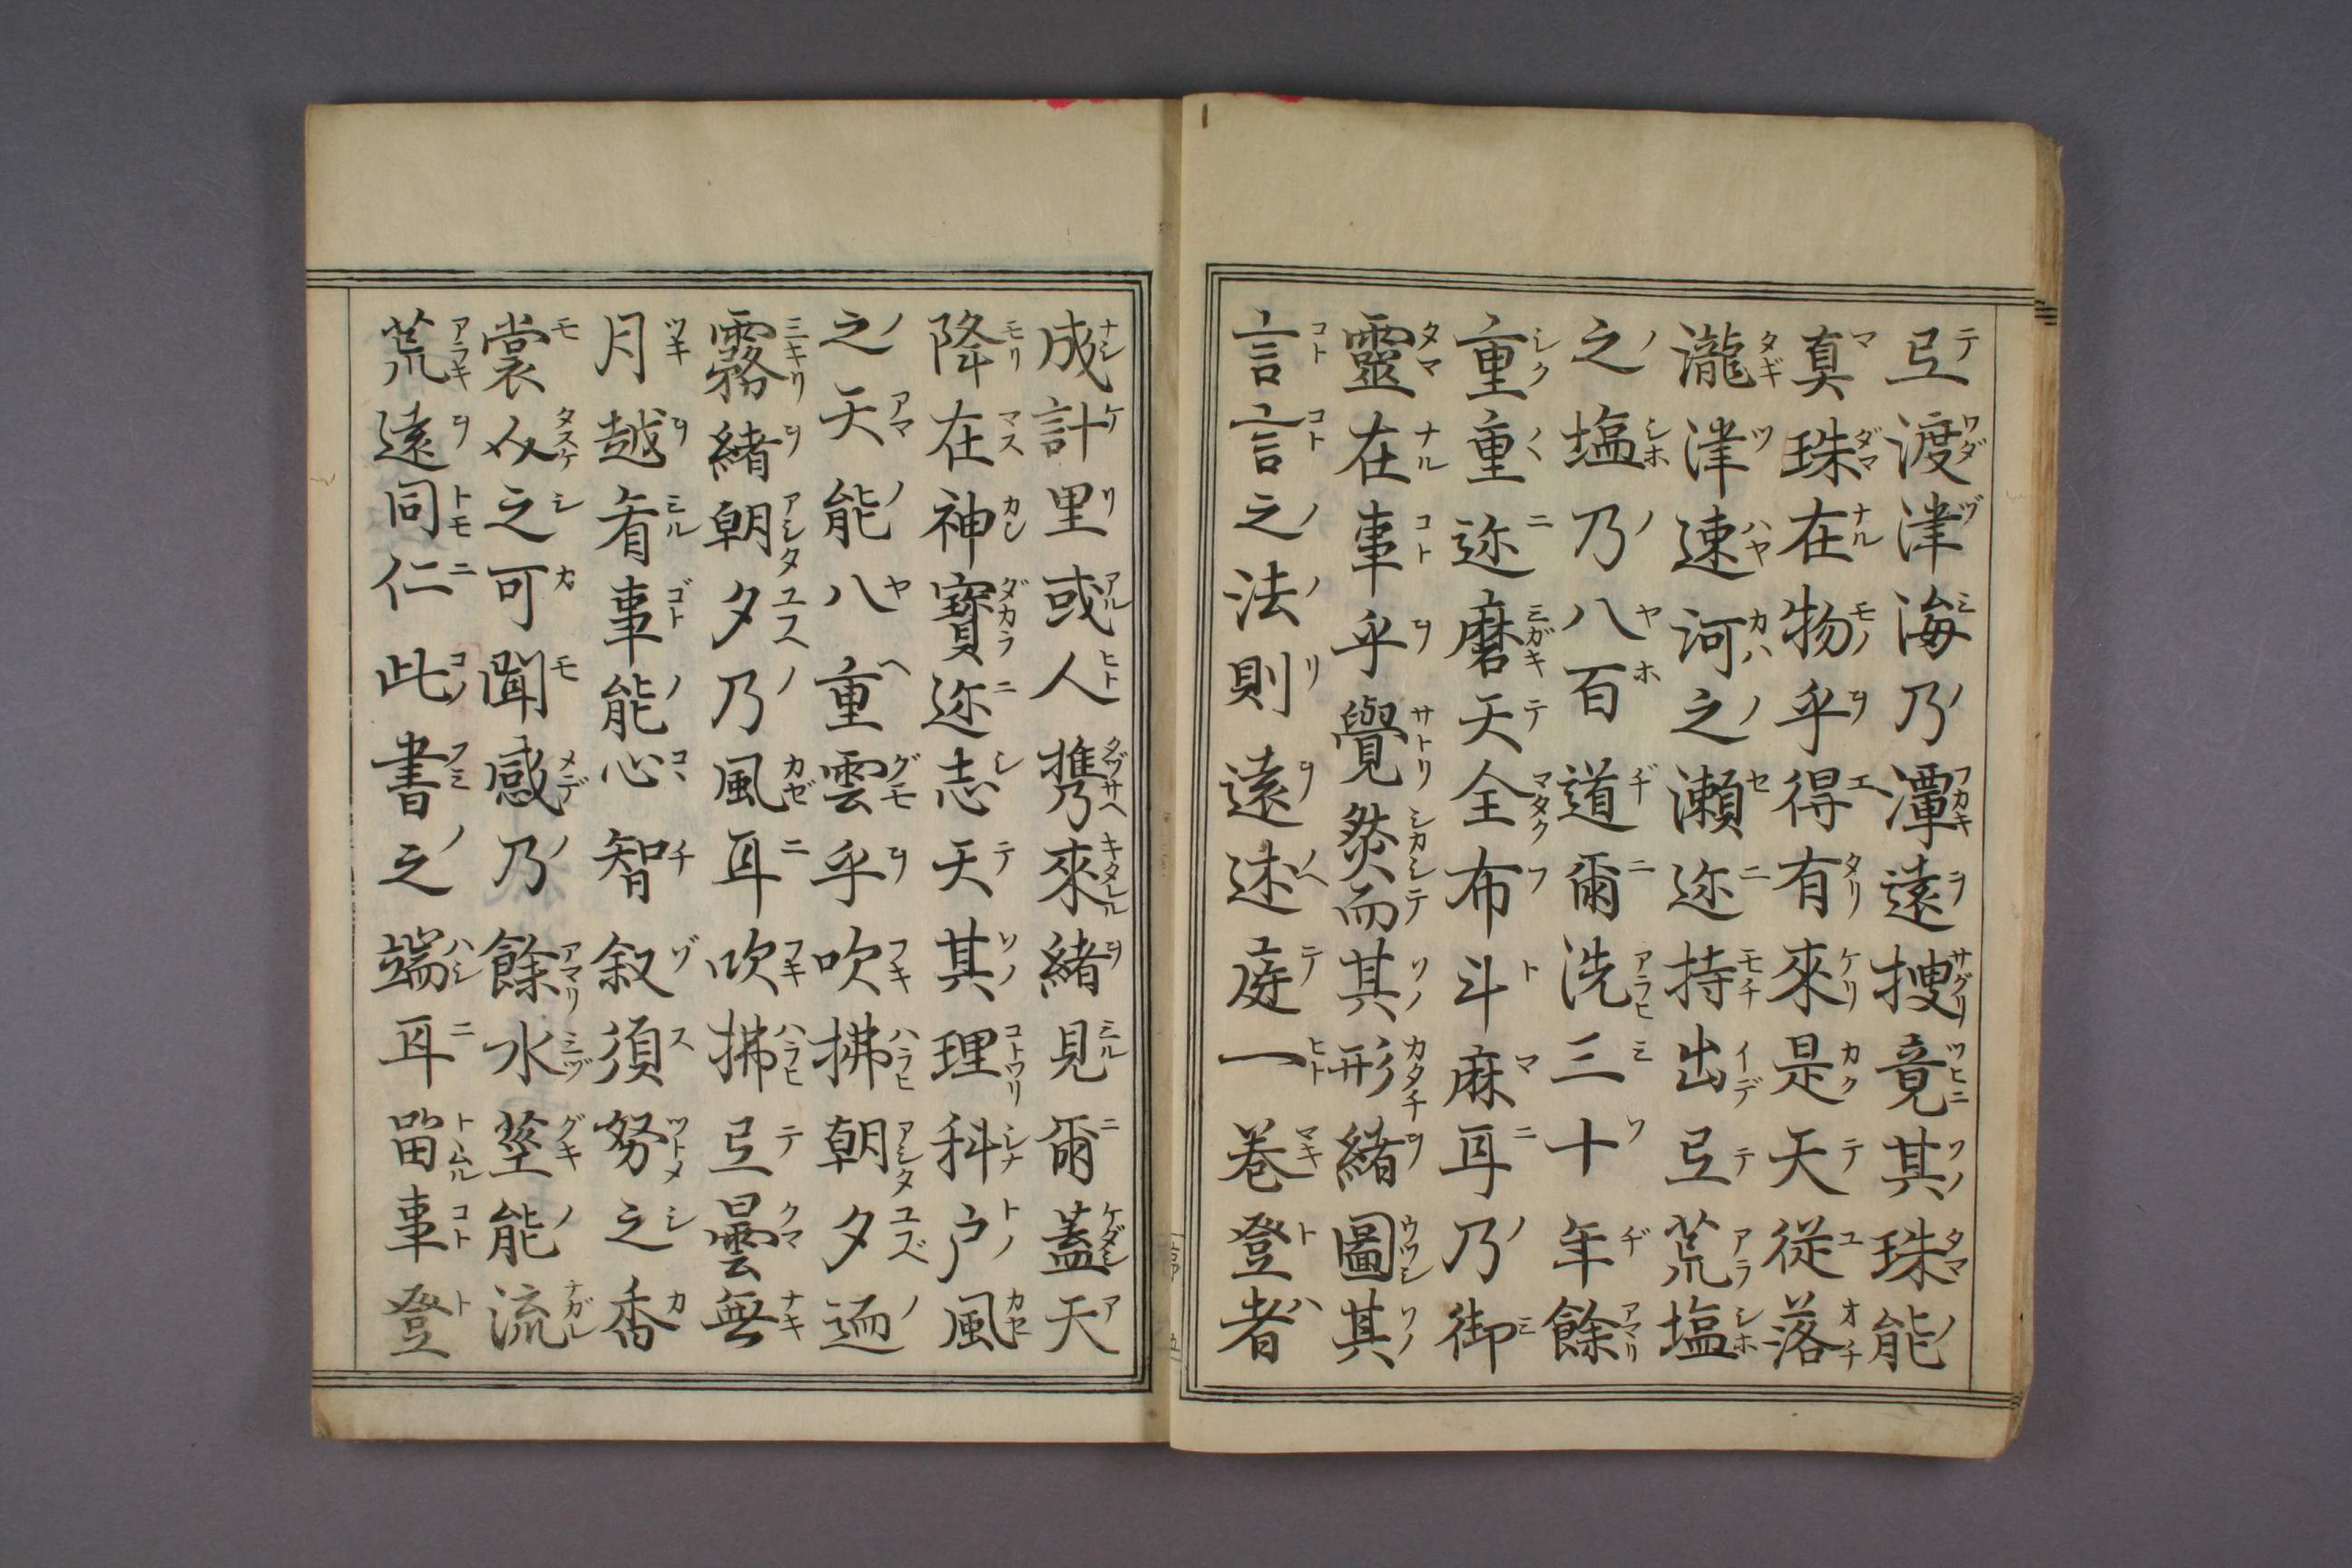 弖渡津海乃潭遠搜竟其珠能
真珠在物乎得有來是天従落
瀧津速河之瀬迩持出弖荒塩
之塩乃八百道爾洗三十年餘
重重迩磨天全布斗麻耳乃御
靈在事乎覺然而其形緒圖其
言言之法則遠述庭一卷登者
成計里或人携來緒見爾蓋天
降在神寶迩志天其理科戸風
之天能八重雲乎吹拂朝夕迺
霧緒朝夕乃風耳吹拂弖曇無
月越看事能心智叙須努之香
裳𠈇之可聞感乃餘水莖能流
荒遠同仁此書之端耳畱事登